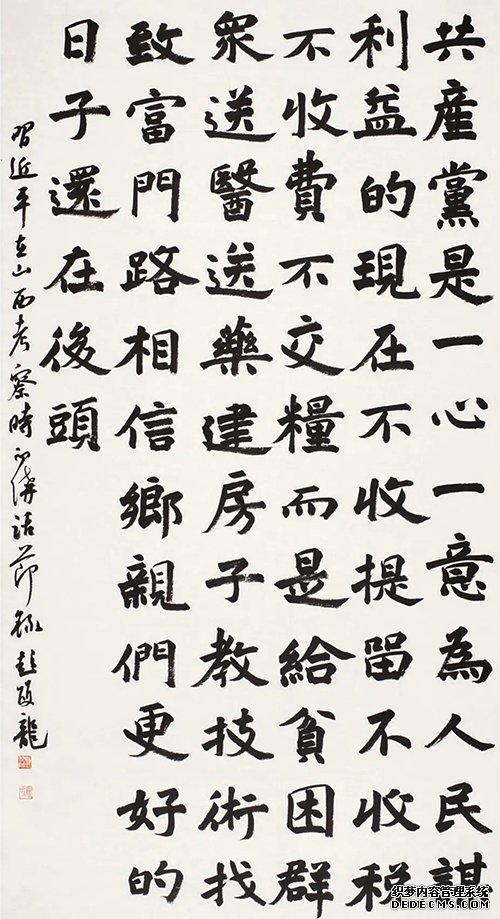 共產黨是一心一意為人民謀
利益的現在不收提留不收稅
不收費不交糧而是給貧困群
衆送醫送藥建房子教技術找
致富門路相信鄉親們更好的
日子還在後頭
習近平在山西考察時的講話節錄
织梦内容管理系统
DEDECMS.COM